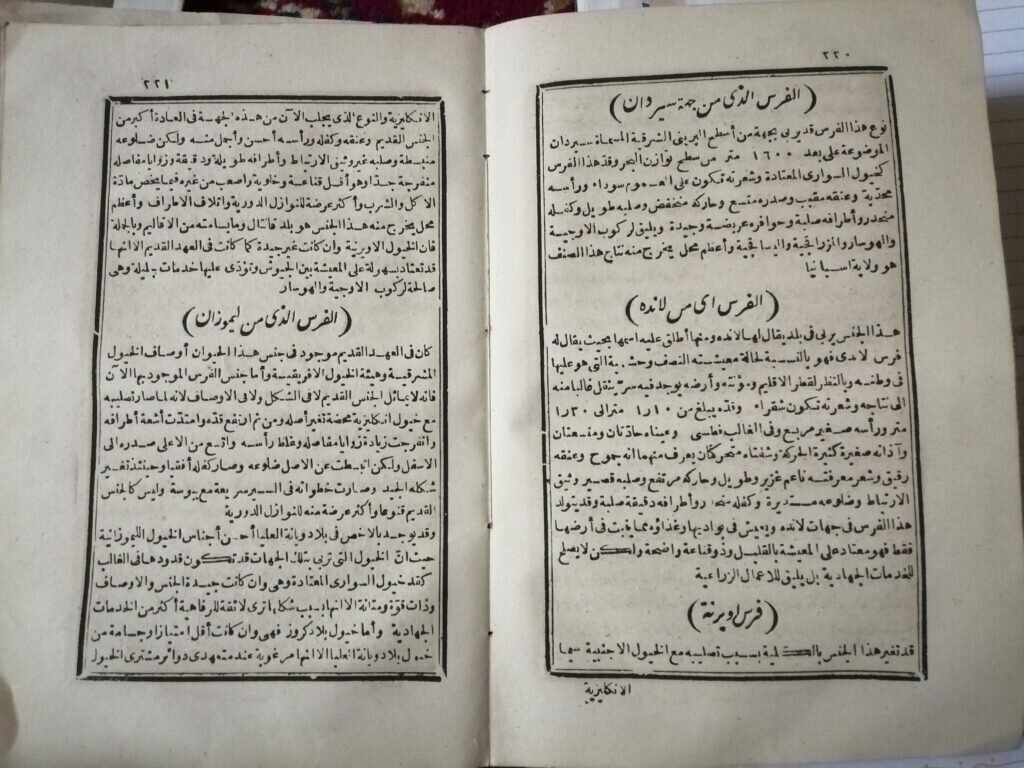 ٢٢٠
(الفرس الذى من جهة سيردان)
نوع هذا الفرس قديربى بجهة من أسطح البريني الشرقية المسماة سيردان
الموضوعة على بعد ١٦٠٠ متر من سطح توازن البحر وقد هذا الفرس
كخيول السوارى المعتادة وشعرته تكون على العموم سوداء ورأسه
محدبة وعنقه مقبب وصدره متسع وحاركه منخفض وصلبه طويل وكفله
منحدر وأطرافه صلبة وحوافره عريضة وجيدة ويليق لركوب الاوجية
والهوسار والمزراقجية واليساقجية وأعظم محل يخرج منه نتاج هذا الصنف
هو ولاية اسبانيا
(الفرس اى من لانده)
هذا الجنس يربى فى بلد يقال لها لانده ومنها أطلق عليه اسمها بحيث يقال له
فرس لاندى فهو بالنسبة لحالة معيشته النصف وحشية التى هو عليها
فى وطنه وبالنظر لقطر الاقليم ومؤنته وأرضه يوجد فيه سر ينتقل غالبا منه
الى نتاجه وشعرته تكون شقراء وقده يبلغ من ١٫١٠ متر الى ١٫٣٠
متر ورأسه صغير مربع وفى الغالب فطسى وعيناه حادتان ومتسعتان
وآذانه صغيرة كثيرة الحركة وشفتاه متحركتان يعرف منهما انه جموح وعنقه
رقيق وشعر معرفته ناعم غزير وطويل وحاركه مرتفع وصلبه قصير وثيق
الارتباط وضلوعه مستديرة وكفله منحدر وأطرافه دقيقة صلبة وقد يتولد
هذا الفرس فى جهات لانده ويعيش فى بواديها وغذاؤه مما ينبت فى أرضها
فقط فهو معتاد على المعيشة بالقليل وذو قناعة واضحة ولكن لا يصلح
للخدمات الجهادية بل يليق للاعمال الزراعية
(فرس اويرنة)
قد تغير هذا الجنس بالكلية بسبب تصليبه مع الخيول الاجنبية سيما
الانكليزية
٢٢١
الانكليزية والنوع الذى يجلب الآن من هذه الجهة فى العادة أكبر من
الجنس القديم وعنقه وكفله ورأسه أحسن وأجمل منه ولكن ضلوعه
منبسطة وصلبه غير وثيق الارتباط وأطرافه طويلة ودقيقة وزوايا مفاصله
منفرجة جدا وهو أقل قناعة وأصعب من غيره فيما يخص مادة
الاكل والشرب وأكثر عرضة للنوازل الدورية واتلاف الاطراف وأعظم
محل يخرج منه هذا الجنس هو بلد قانتال وما يسامته من الاقاليم وبالجملة
فان الخيول الاورنية وان كانت غير جيدة كما كانت فى العهد القديم الا انها
قد تعتاد بسهولة على المعيشة بين الجيوش وتؤدى عليها خدمات جليلة وهى
صالحة لركوب الاوجية والهوسار
(الفرس الذى من ليموزان)
كان فى العهد القديم موجود فى جنس هذا الحيوان أوصاف الخيول
المشرقية وهيئة الخيول الافريقية وأما جنس الفرس الموجود بها الآن
فانه لا يماثل الجنس القديم لا فى الشكل ولا فى الاوصاف لانه لما صار تصليبه
مع خيول انكليزية محضة تغير أصله ومن ثم ارتفع قده وامتدت أشعة أطرافه
وانفرجت زيادة زوايا مفاصله وغلظ رأسه واتسع من الاعلى صدره الى
الاسفل ولكن انبسطت عن الاصل ضلوعه وصار كفله أفقيا وحينئذ تغير
شكله الجيد وصارت خطواته فى السير سريعة مع يبوسة وليس كالجنس
القديم قنوعا وأكثر عرضة منه للنوازل الدورية
وقد يوجد بالاخص فى بلاد ويانة العليا أحسن أجناس الخيول الليموزانية
حيث ان الخيول التى تربى بتلك الجهات قد تكون قدودها فى الغالب
كقد خيول السوارى المعتادة وهى وان كانت جيدة الجنس والاوصاف
وذات قوة ومتانة الا انها بسبب شكلها ترى لائقة للرفاهية أكثر من الخدمات
الجهادية وأما خيول بلاد كروز فهى وان كانت أقل امتيازا وجسامة من
خيول بلاد ويانة العليا الا انها مرغوبة عند متعهدى دوائر مشترى الخيول